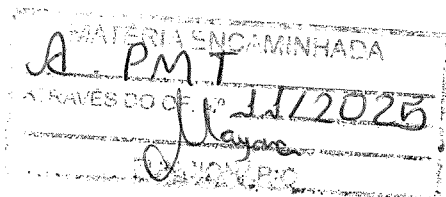 MATÉRIA ENCAMINHADA
A. PMT
ATRAVÉS DO OF. Nº 11/2025
Mayara